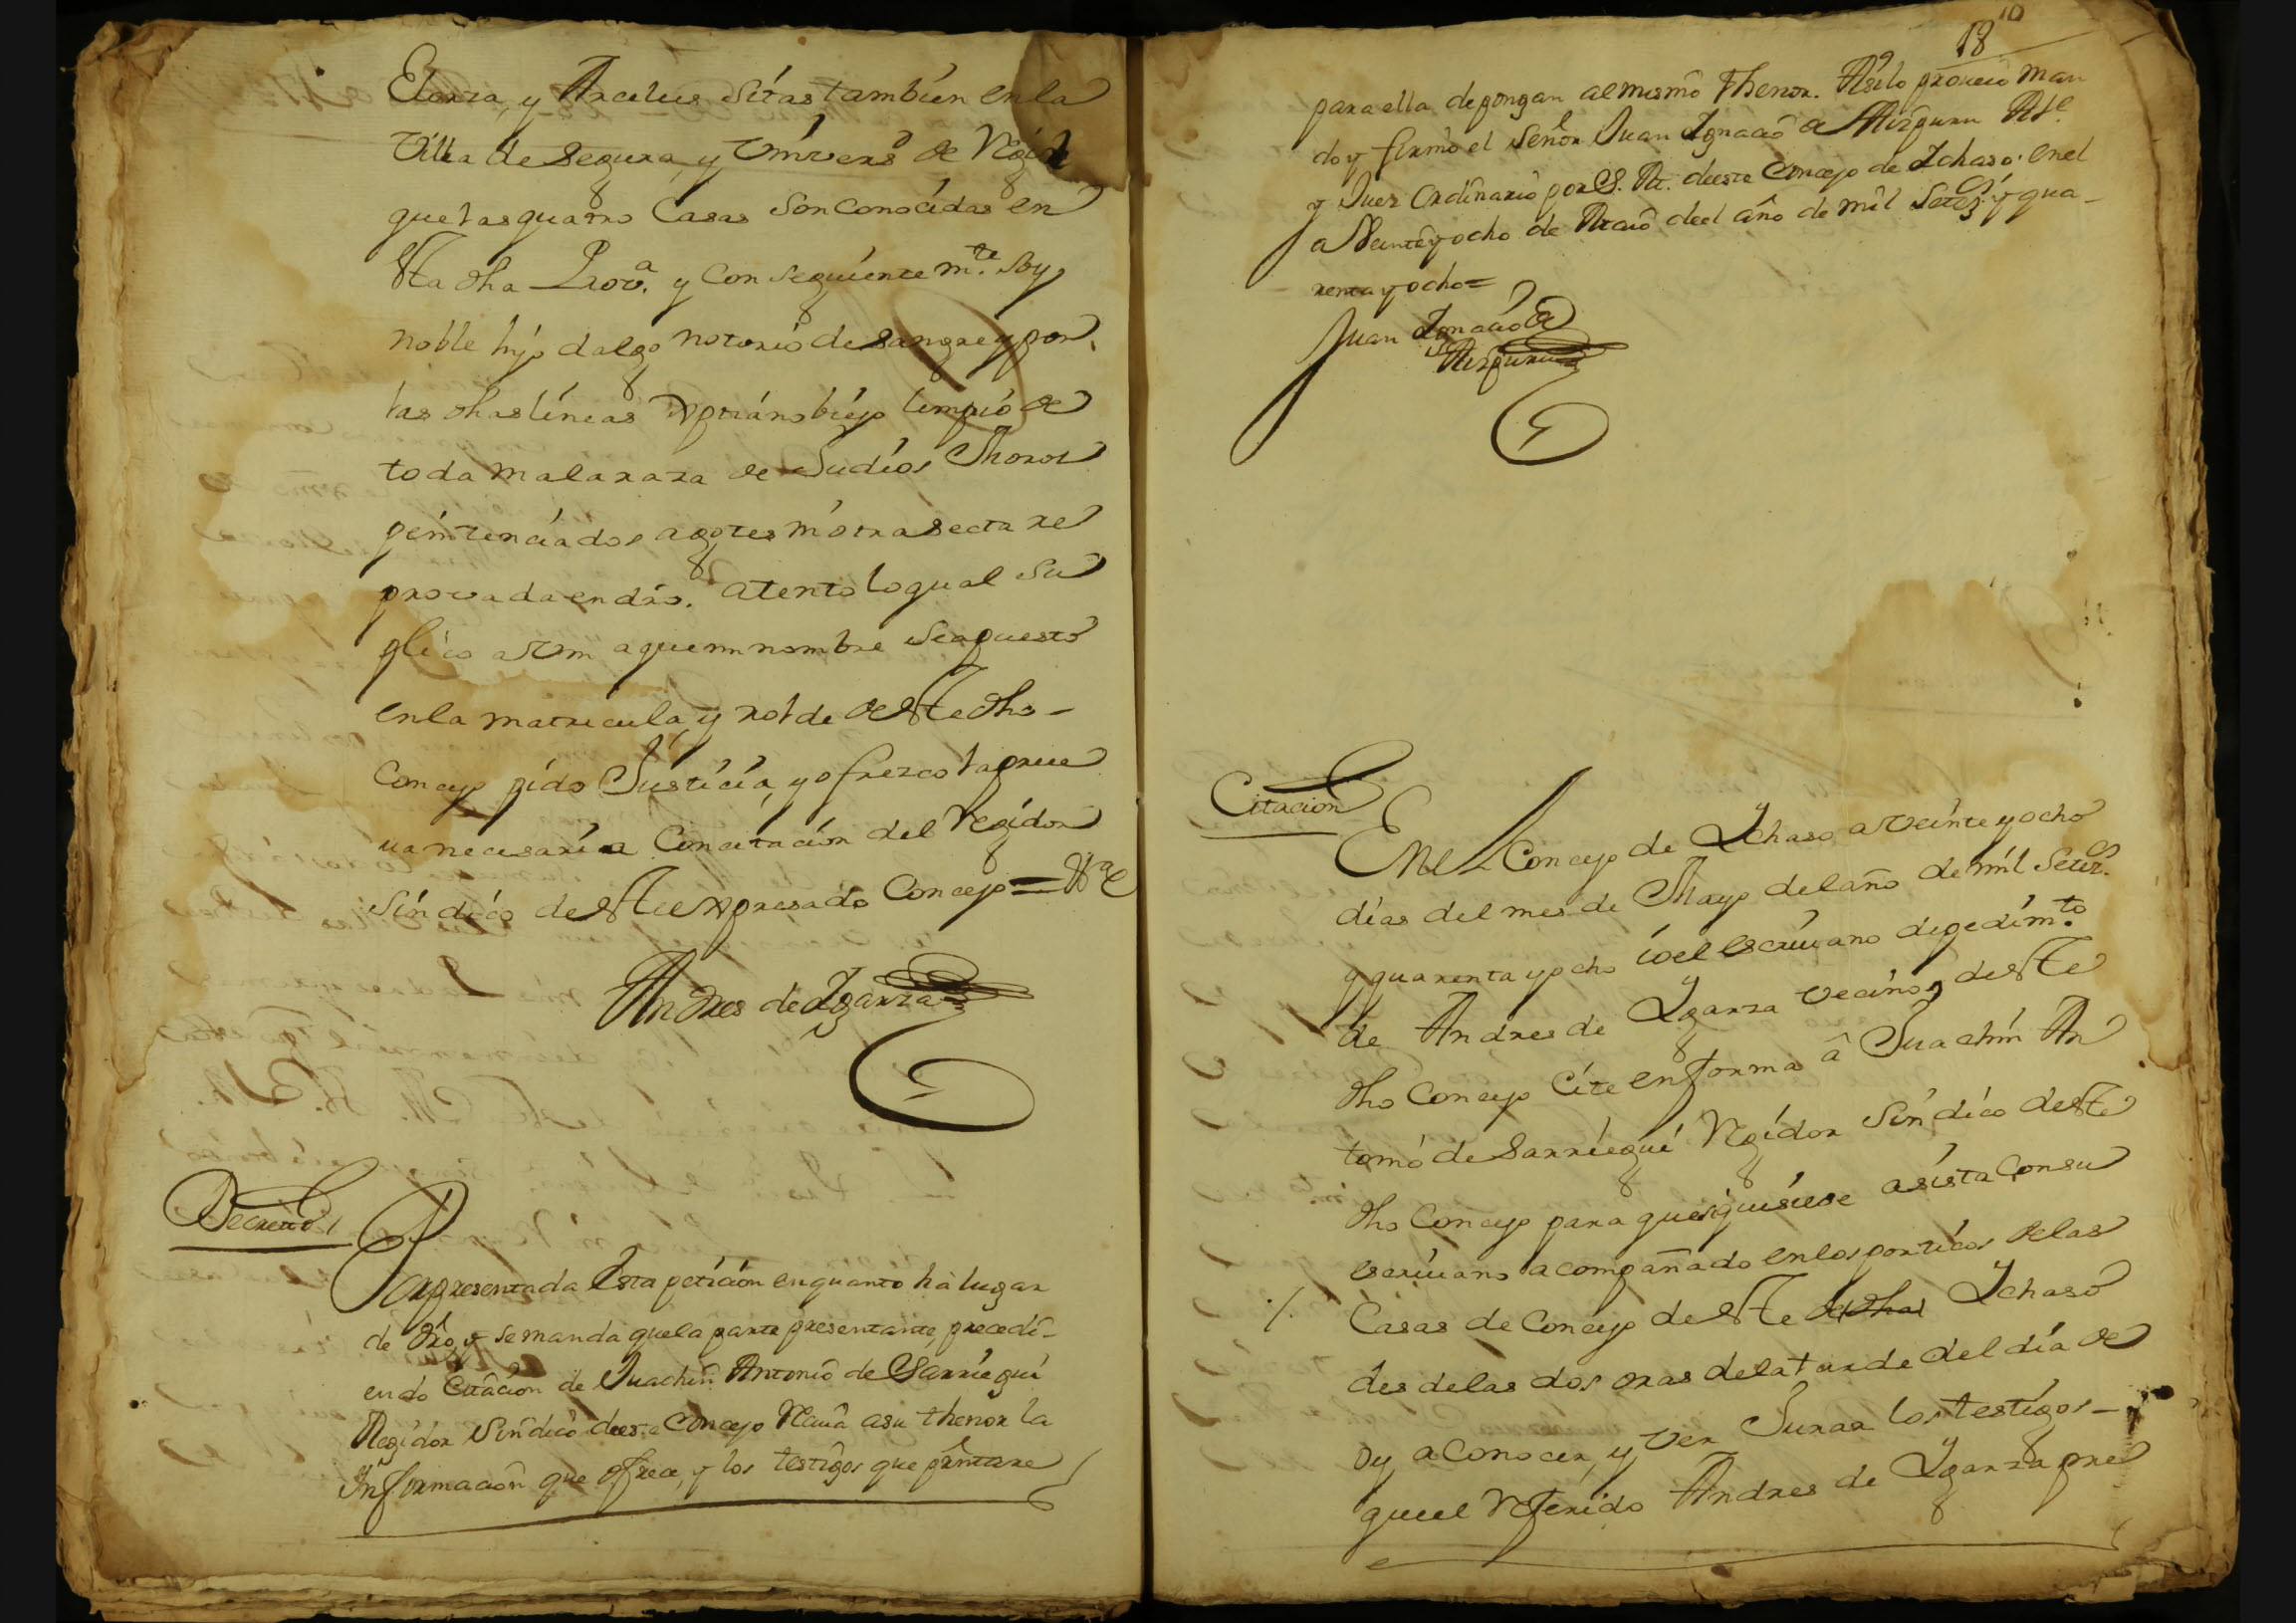 Elorza, y Arcelus Sitas tambien en la
Villa de Segura, y Univers.d de Regil
que las quatro Casas son conocidas en
esta dha Prov.a y conseguientem.te soy
noble hijo dalgo notorio de sangre y por
las dhas lineas xptiano biejo limpio de
toda mala raza de Judios Moros
penitenciados agotes ni otra secta re
provada en dro. atento lo qual su
plico a Vm a que mi nombre sea puesto
en la matricula, y rolde de este dho
Concejo pido Justicia, y ofrezco la prue
ua necesaria Con citacion del Regidor
Sindico de este expresado Concejo =
Andres de Igarza
Decreto
Por presentada esta peticion en quanto ha lugar
de dro, y se manda que la parte presentante, precedi-
endo Citacion de Juachin Antonio de Sarriegui
Regidor Sindico deeste Concejo Reciua a su thenor la
Informacion que ofrece, y los testigos que pntare
18
10
para ella depongan al mismo thenor. Asi lo proueio man
do y firmo el Señor Juan Ignacio de Aizpuru Al.e
y Juez Ordinario por S. M. deeste Concejo de Ichaso. en el
a Veinte y ocho de Maio deel año de mil Setez.s y qua-
renta y ocho =
Juan Ignacio de
Aizpuru
Citacion
En el Concejo de Ychaso a veinte y ocho
dias del mes de Mayo del año de mil Setez.s
y quarenta y ocho io el escriuano de pedim.to
de Andres de Ygarza vecino de este
dho Concejo Cite en forma â Juachin An
tonio de Sarriegui Regidor Sindico de este
dho Concejo para que si quisiese asista con su
escriuano acompañado en los porticos de las
Casas de Concejo de este de dha Ychaso
desde las dos oras de la tarde del dia de
oy a conocer, y ver Jurar los testigos
que el Referido Andres de Ygarza pre